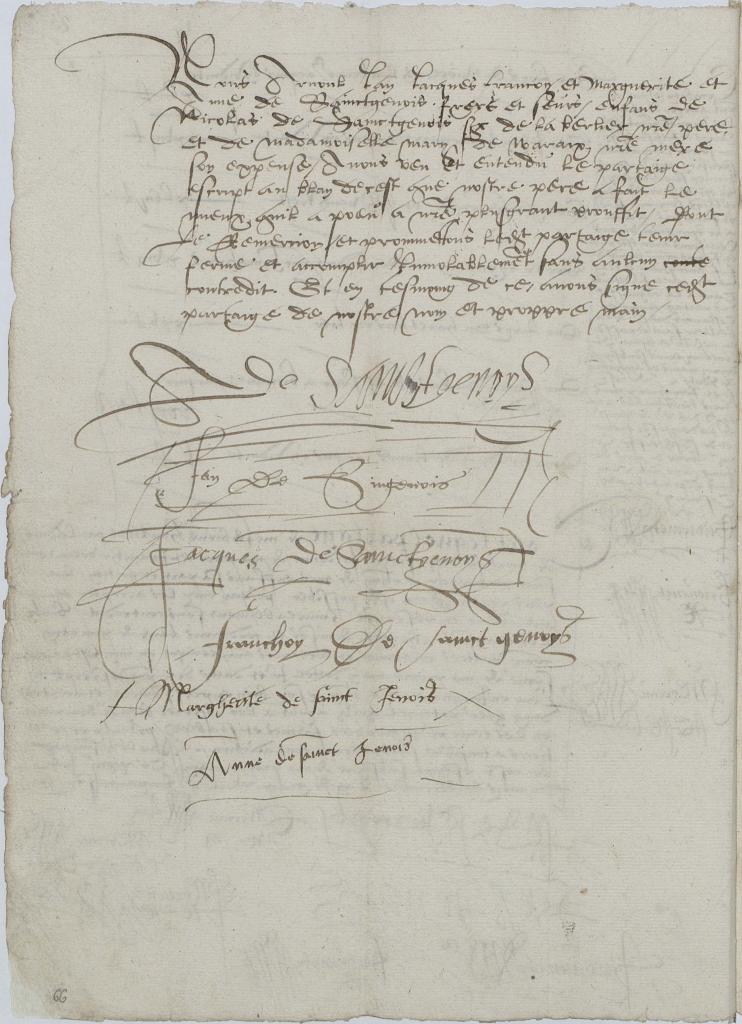 Nous Arnoul Jan Jacques francoy et Marguerite et
Anne de Sainctgenois freres et seurs enfans de
Nicolas de Sainctgenois sr de la berlier nre pere
et de madamoiselle marye de waraix nre mere
son expense Avons veu et entendu le partaige
escript au blan decest que nostre pere a faict le
mieux quil a poeu a nre plusgrant prouffit Dont
le Remercion et promettons ledt partaige tenir
ferme et accomplir Inviolablement sans aulcun conte
contredit Et en tesmoing de ce avons signe cedt
partaige de nostre nom et propre main
A de Sainctgenoys
Jan De Singenois
Jacques de Sanctgenoys
franchoy De sainct genoys
Margherite de sainct Jenois
Anne de sainct genois
66